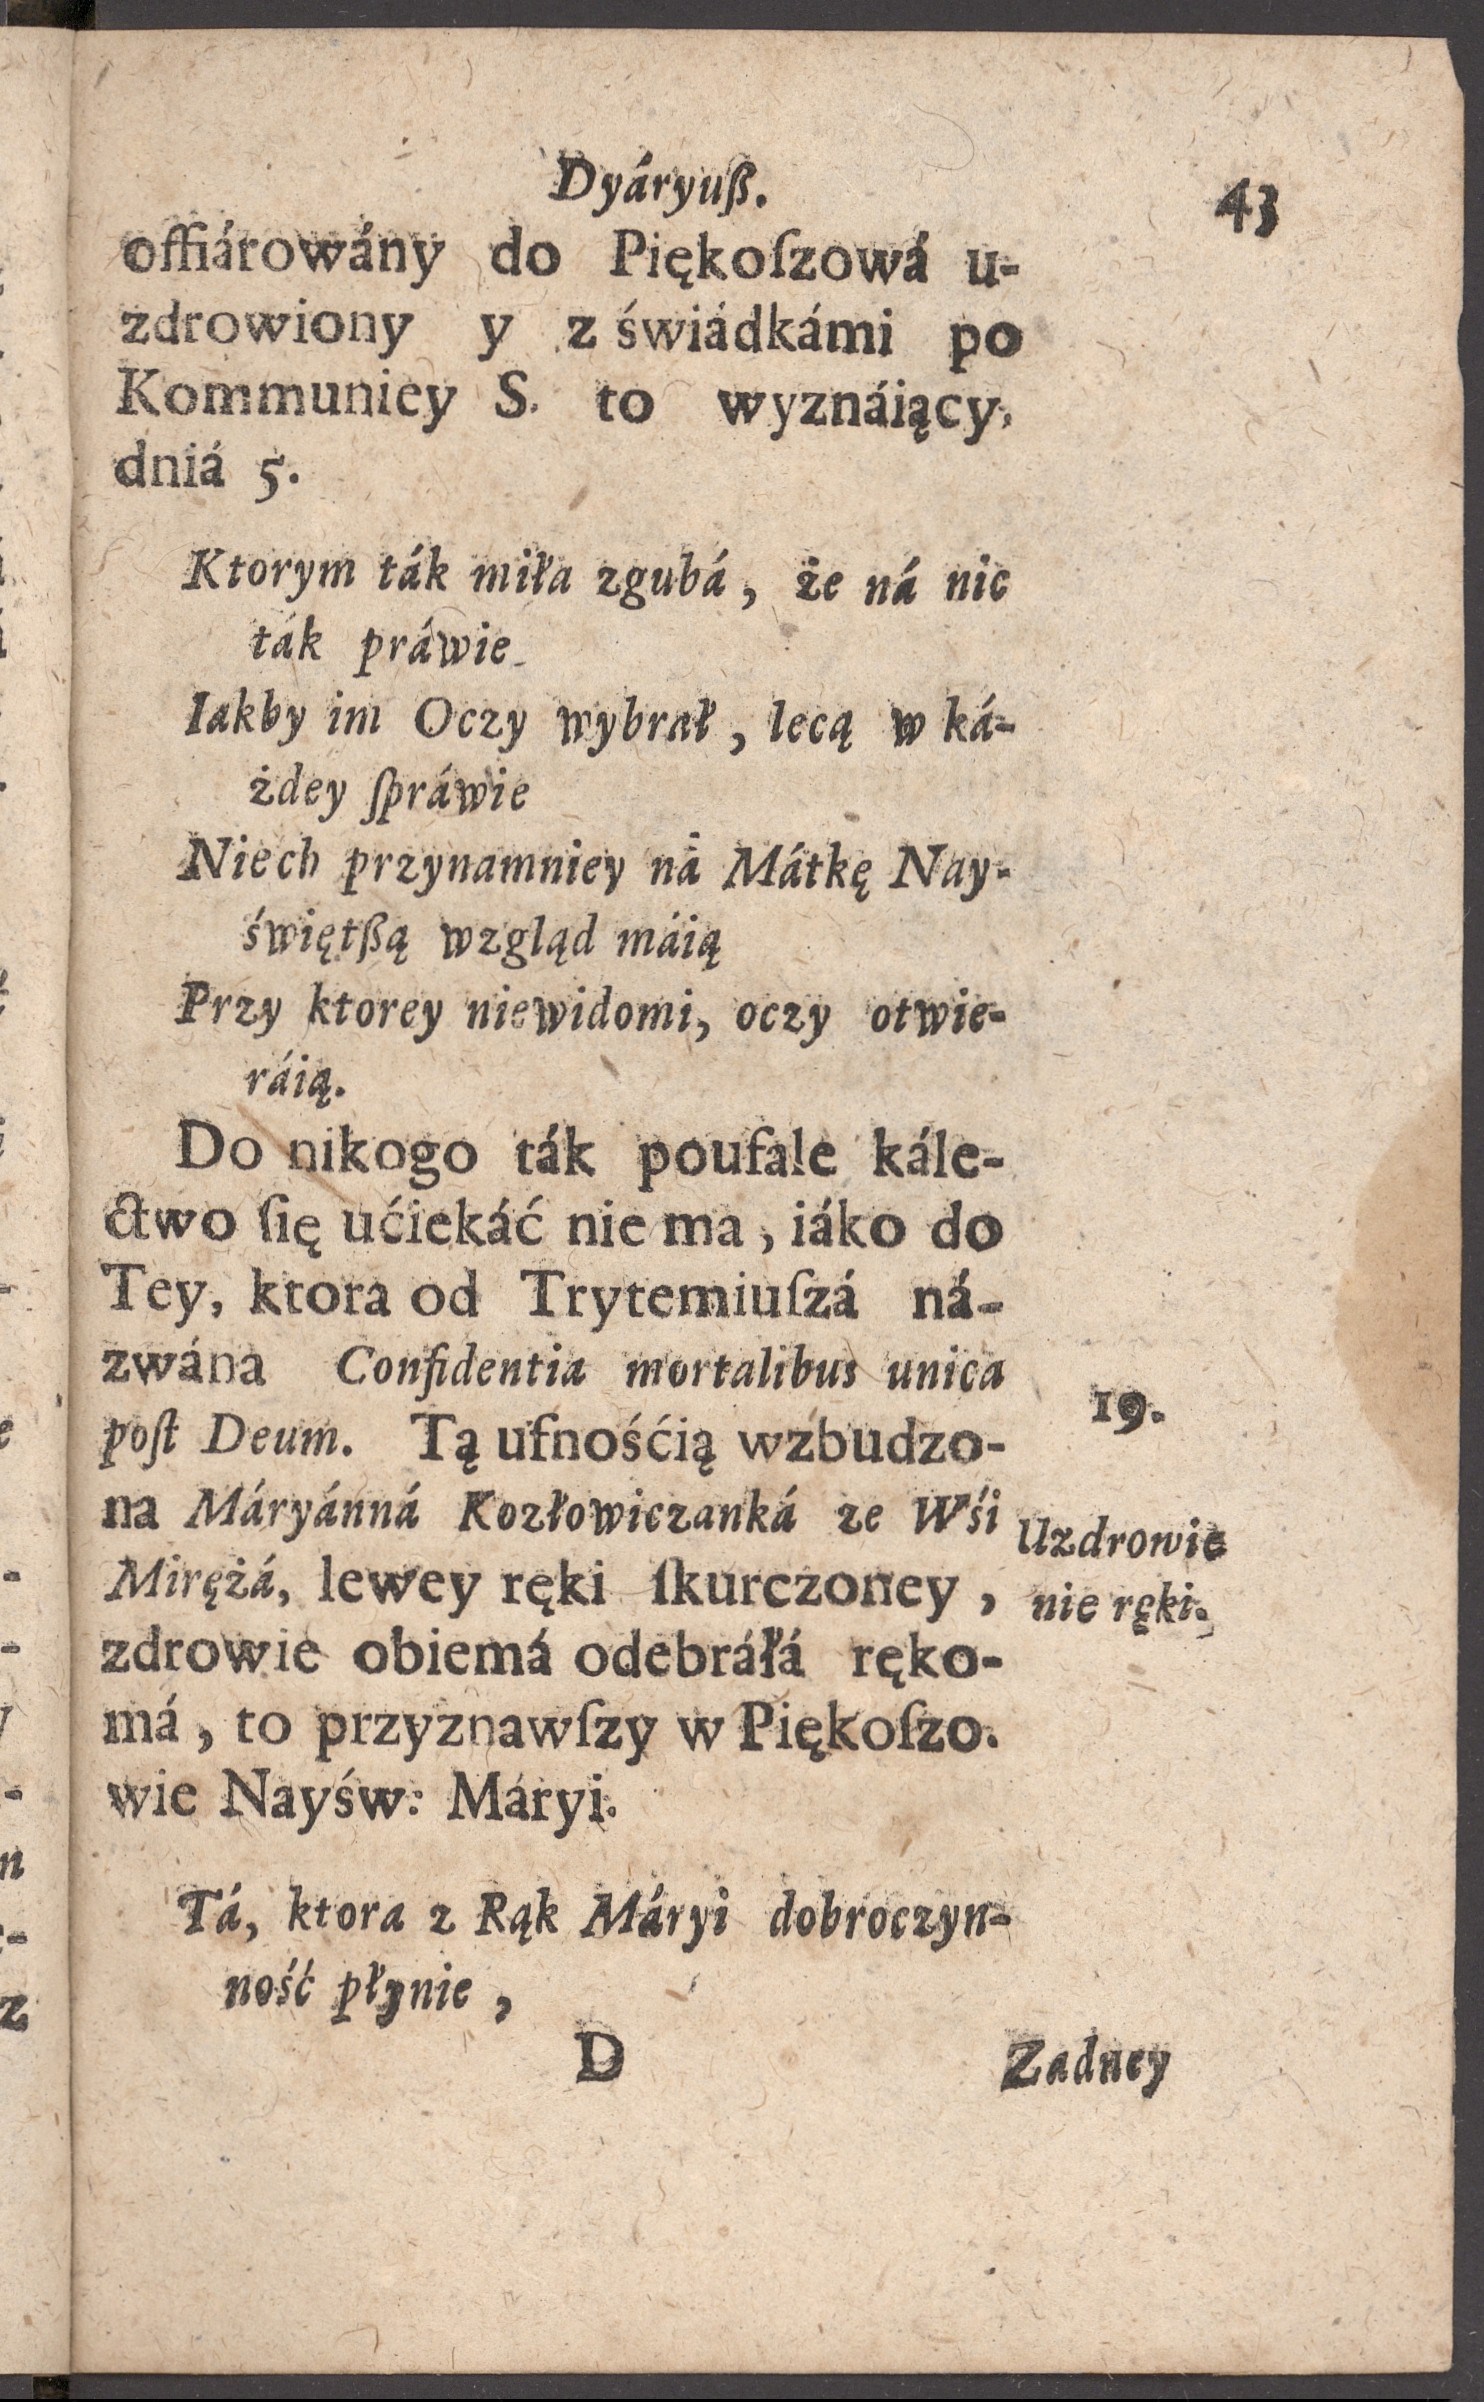 Dyáryuß.
43
offiárowány do Piękoſzowá u-
zdrowiony y z świádkámi po
Kommuniey S. to wyznáiący,
dniá 5.
Ktorym ták miła zgubá, że ná nic
ták práwie
Iakby im Oczy wybrał, lecą w ká-
żdey ſpráwie
Niech przynamniey ná Mátkę Nay-
świętßą wzgląd máią
Przy ktorey niewidomi, oczy otwie-
ráią.
Do nikogo ták poufale kále-
ctwo ſię ućiekáć nie ma, iáko do
Tey, ktora od Trytemiuſzá ná-
zwána Confidentia mortalibus unica
poſt Deum. Tą ufnośćią wzbudzo-
19.
na Máryánná Kozłowiczanká ze Wśi
Mirężá, lewey ręki ſkurczoney,
Uzdrowie
nie ręki.
zdrowie obiemá odebráłá ręko-
má, to przyznawſzy w Piękoſzo.
wie Nayśw: Máryi.
Tá, ktora z Rąk Máryi dobroczyn-
ność płynie,
D
Zadney